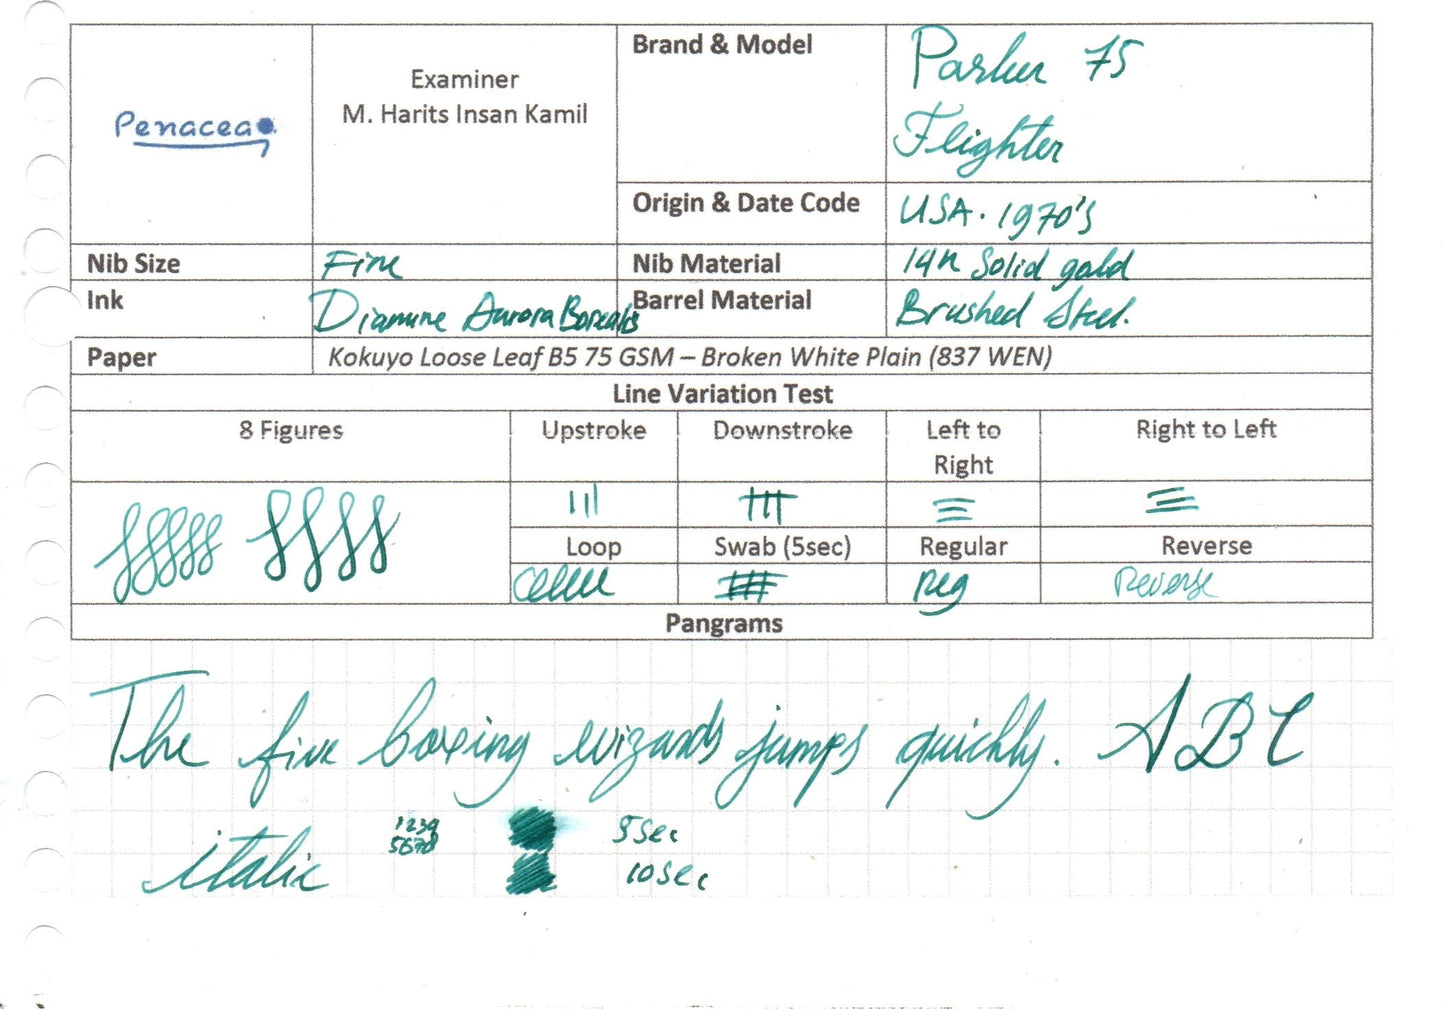 Penacea
Examiner
M. Harits Insan Kamil
Brand & Model
Parker 75
Flighter
Origin & Date Code
USA. 1970's
Nib Size
Fine
Nib Material
14K Solid gold
Ink
Diamine Aurora Borealis
Barrel Material
Brushed Steel.
Paper
Kokuyo Loose Leaf B5 75 GSM – Broken White Plain (837 WEN)
Line Variation Test
8 Figures
Upstroke
Downstroke
Left to
Right
Right to Left
Loop
Swab (5sec)
Regular
Reverse
Reg
Reverse
Pangrams
The five boxing wizards jumps quickly. ABC
italic
1234
5678
5sec
10sec